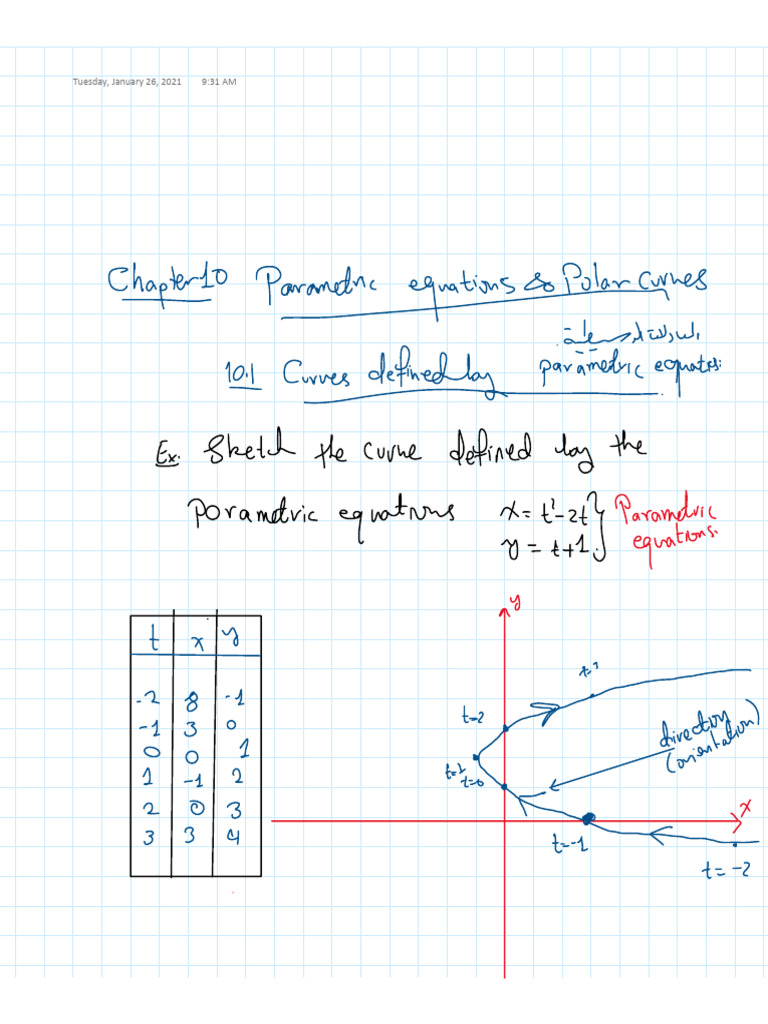 Tuesday, January 26, 2021 9:31 AM
Chapter 10 Parametric equations & Polar Curves
10.1 Curves defined by parametric equatis:
Ex. Sketch the curve defined by the
parametric equations x = t²-2t } Parametric
y = t+1. equations.
t x y
-2 8 -1
-1 3 0
0 0 1
1 -1 2
2 0 3
3 3 4
y
t=2
t=0
direction
(orientation)
x
t=-1
t=-2